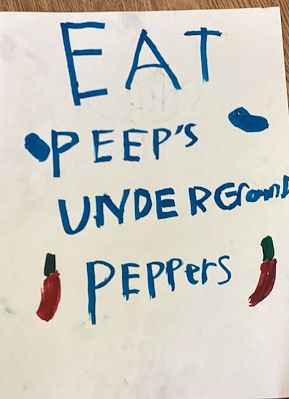 EAT
PEEP's
UNDERGround
PEPPers